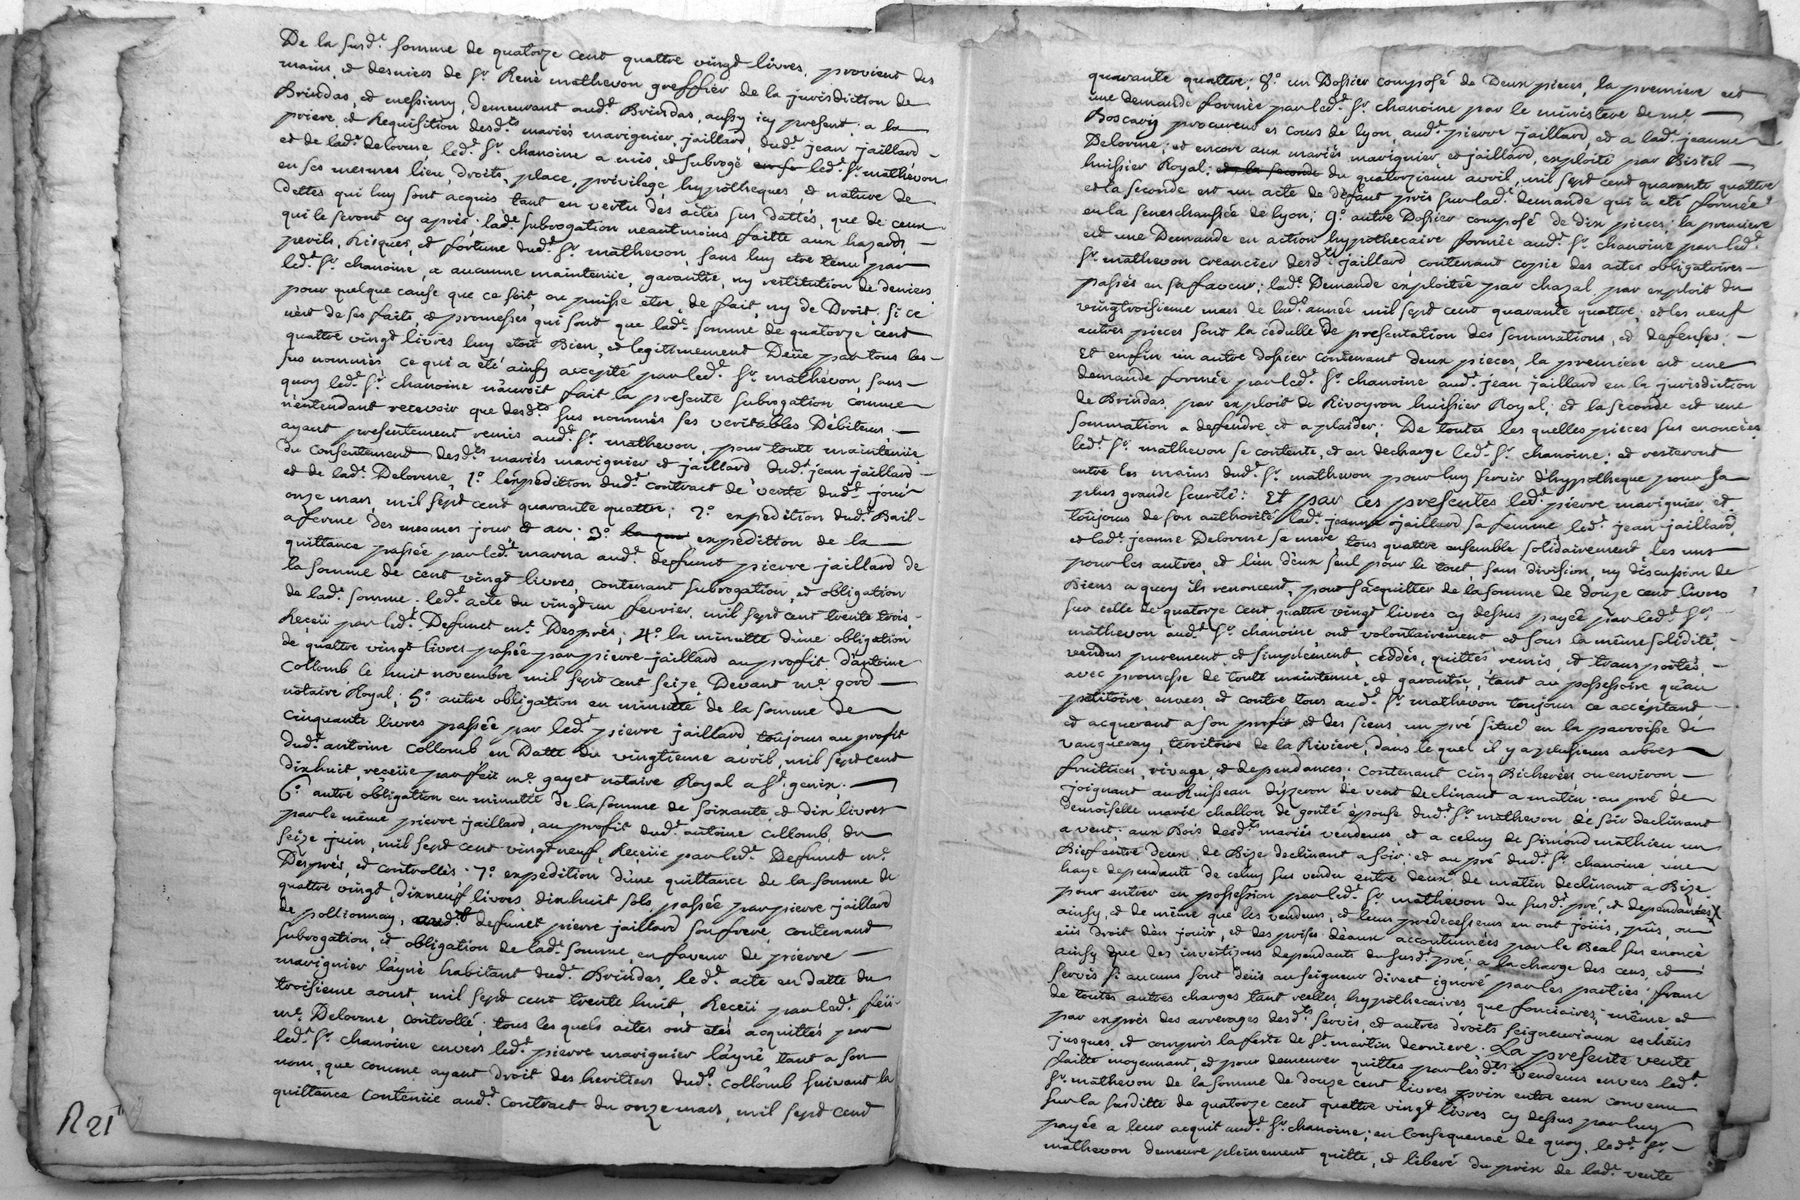 De la susd.e somme de quatorze cent quattre vingt livres, provient des
mains, et desniers de Sr. René mathevon greffier de la jurisdiction de
Brindas, et messimy, demeurant aud.t Brindas, aussy icy present; a la
priere, et Requisition desd.ts mariés marignier, jaillard, dud.t jean jaillard
et de lad.e delorme led.t Sr. chanoine a mis, et subrogé led.t Sr. mathevon
en ses mesmes lieu, droits, place, privilege, hypotheques, et nature de
dettes qui luy sont acquis tant en vertu des actes sus dattés, que de ceux
qui le seront cy après; lad.e subrogation neantmoins faitte aux hazards,
perils, Risques, et fortune dud.t Sr. mathevon, sans luy etre tenu par
led.t Sr. chanoine, a aucunne maintenüe, garantie, ny restitution de deniers
pour quelque cause que ce soit, ou puisse etre, de fait, ny de Droit, si ce
n'est de ses faits et promesses qui sont que lad.e somme de quatorze cent
quattre vingt livres luy etoit Bien, et legitimement Deüe par tous les
sus nommés ce qui a été ainsy accepté par led.t Sr. mathevon, sans
quoy led.t Sr. chanoine n'auroit fait la presente subrogation comme
n'entendant recevoir que desd.ts sus nommés ses veritables Débiteurs.
ayant presentement remis aud.t Sr. mathevon, pour toutte maintenüe
du consentement desd.ts mariés marignier et jaillard dud.t jean jaillard
et de lad.e Delorme, 1.o l'expedition dud.t contract de vente dud.t jour
onze mars, mil sept cent quarante quattre; 2.o expedition dud.t Bail
a ferme des mesmes jour et an; 3.o expedition de la
quittance passée par led.t marna aud.t deffunct pierre jaillard de
la somme de cent vingt livres, contenant subrogation, et obligation
de lad.e somme. led.t acte du vingt un fevrier, mil sept cent trente trois
Receü par led.t Defunct me. Desprès; 4.o la minutte d'une obligation
de quattre vingt livres passée par pierre jaillard au profit d'antoine
Collomb le huit novembre mil sept cent seize. Devant me. gord
notaire Royal; 5.o autre obligation en minutte de la somme de
cinquante livres passée par led.t pierre jaillard, toujours au profit
dud.t antoine collomb en Datte du vingtieme avril, mil sept cent
dixhuit, receüe par feu me. gayet notaire Royal a St. genix.
6.o autre obligation en minutte de la somme de soixante et dix livres
par le même pierre jaillard, au profit dud.t antoine collomb du
seize juin, mil sept cent vingt neuf, Receüe par led.t Defunct me.
Desprès, et controllés. 7.o expedition d'une quittance de la somme de
quattre vingt, dixneuf livres, dixhuit sols, passée par pierre jaillard
de pollionnay, defunct pierre jaillard son frere, contenant
subrogation, et obligation de lad.e somme, en faveur de pierre
marignier l'ayné habitant dud.t Brindas, led.t acte en datte du
troisieme aoust, mil sept cent trente huit, Receü par led.t feu
me. Delorme, controllé; tous les quels actes ont etés acquittés par
led.t Sr. chanoine envers led.t pierre marignier l'ayné tant a son
nom, que comme ayant droit des heritiers dud.t collomb suivant la
quittance contenüe aud.t contract du onze mars, mil sept cent
R 21
quarante quattre; 8.o un Dossier composé de Deux pieces, la premiere est
une demande formée par led.t Sr. chanoine par le ministere de me
Boscary procureur es cours de lyon, aud.t pierre jaillard, et a lad.e jeanne
Delorme; et encore aux mariés marignier, et jaillard, exploitté par Bistel
huissier Royal; et la seconde du quatorzieme avril, mil sept cent quarante quattre
et la seconde est un acte de défaut près sur lad.e demande qui a été formée
en la seneschaussée de lyon; 9.o autre Dossier composé de dix pieces; la premiere
est une Demande en action hypothecaire formée aud.t Sr. chanoine par led.t
Sr. mathevon creancier desd.ts jaillard, contenant copie des actes obligatoires
passés en sa faveur; lad.e Demande exploitée par chazal par exploit du
vingt troisieme mars de lad.e année mil sept cent quarante quattre; et les neuf
autres pieces sont la cédulle de présentation des sommations, et defenses;
Et enfin un autre dossier contenant deux pieces, la premiere est une
demande formée par led.t Sr. chanoine aud.t jean jaillard en la jurisdiction
de Brindas, par exploit de Rivoyron huissier Royal; et la seconde est une
sommation a defendre, et a plaider; De toutes les quelles pieces sus enoncées
led.t Sr. mathevon se contente, et en decharge led.t Sr. chanoine; et resteront
entre les mains dud.t Sr. mathevon pour luy servir d'hypotheque pour sa
plus grande seureté; Et par ces presentes led.t pierre marignier, et
toujours de son authorité, lad.e jeanne jaillard sa femme led.t jean jaillard
et lad.e jeanne Delorme sa mere tous quattre ensemble solidairement les uns
pour les autres, et l'un d'eux seul pour le tout, sans division, ny discussion de
Biens a quoy ils renoncent, pour s'acquitter de la somme de douze cent livres
sur celle de quatorze cent quattre vingt livres cy dessus payée par led.t Sr.
mathevon aud.t Sr. chanoine ont volontairement, et sous la même solidité,
vendus purement, et simplement, ceddés, quittés remis, et transportés,
avec promesse de toutte maintenüe, et garantie, tant au possessoire qu'au
petitoire envers, et contre tous aud.t Sr. mathevon toujours ce acceptant
et acquerant a son profit et des siens, un pré situé en la parroisse de
vaugneray, territoire de la Riviere, dans le quel il y a plusieurs arbres
fruitiers, rivage, et dependances; contenant cinq Bicherées ou environ
joignant au Ruisseau d'yzeron de vent declinant a matin; au pré de
demoiselle marie challon de gonté épouse dud.t Sr. mathevon, de soir declinant
a vent; aux Bois desd.ts mariés vendeurs, et a celuy de Simond mathieu un
Bief entre deux, de Bize declinant a soir; et au pré dud.t Sr. chanoine, une
haye dependante de celuy sus vendu entre deux, de matin declinant a Bize
pour entrer en possession par led.t Sr. mathevon du susd.t pré, et dependances
ainsy, et de même que les vendeurs, et leurs predecesseurs en ont joüis, pûs, ou
eüs droit d'en jouir, et des prises d'eaux accoutumées par le Beal sus enoncé
ainsy que des invertizons dependants du susd.t pré; a la charge des cens, et
servis si aucuns sont deüs au seigneur direct ignoré par les parties; franc
de toutes autres charges tant reelles, hypothecaires, que foncieres; même et
par exprès des arrerages desd.ts servis, et autres droits seigneuriaux escheüs
jusques, et compris la feste de St. martin derniere. La presente vente
faitte moyennant, et pour demeurer quittes par lesd.ts vendeurs envers led.t
Sr. mathevon de la somme de douze cent livres, poix entre eux convenu
sur la susditte de quatorze cent quattre vingt livres cy dessus par luy
payée a leur acquit aud.t Sr. chanoine; en consequence de quoy, led.t Sr.
mathevon demeure pleinement quitte, et liberé du prix de lad.e vente